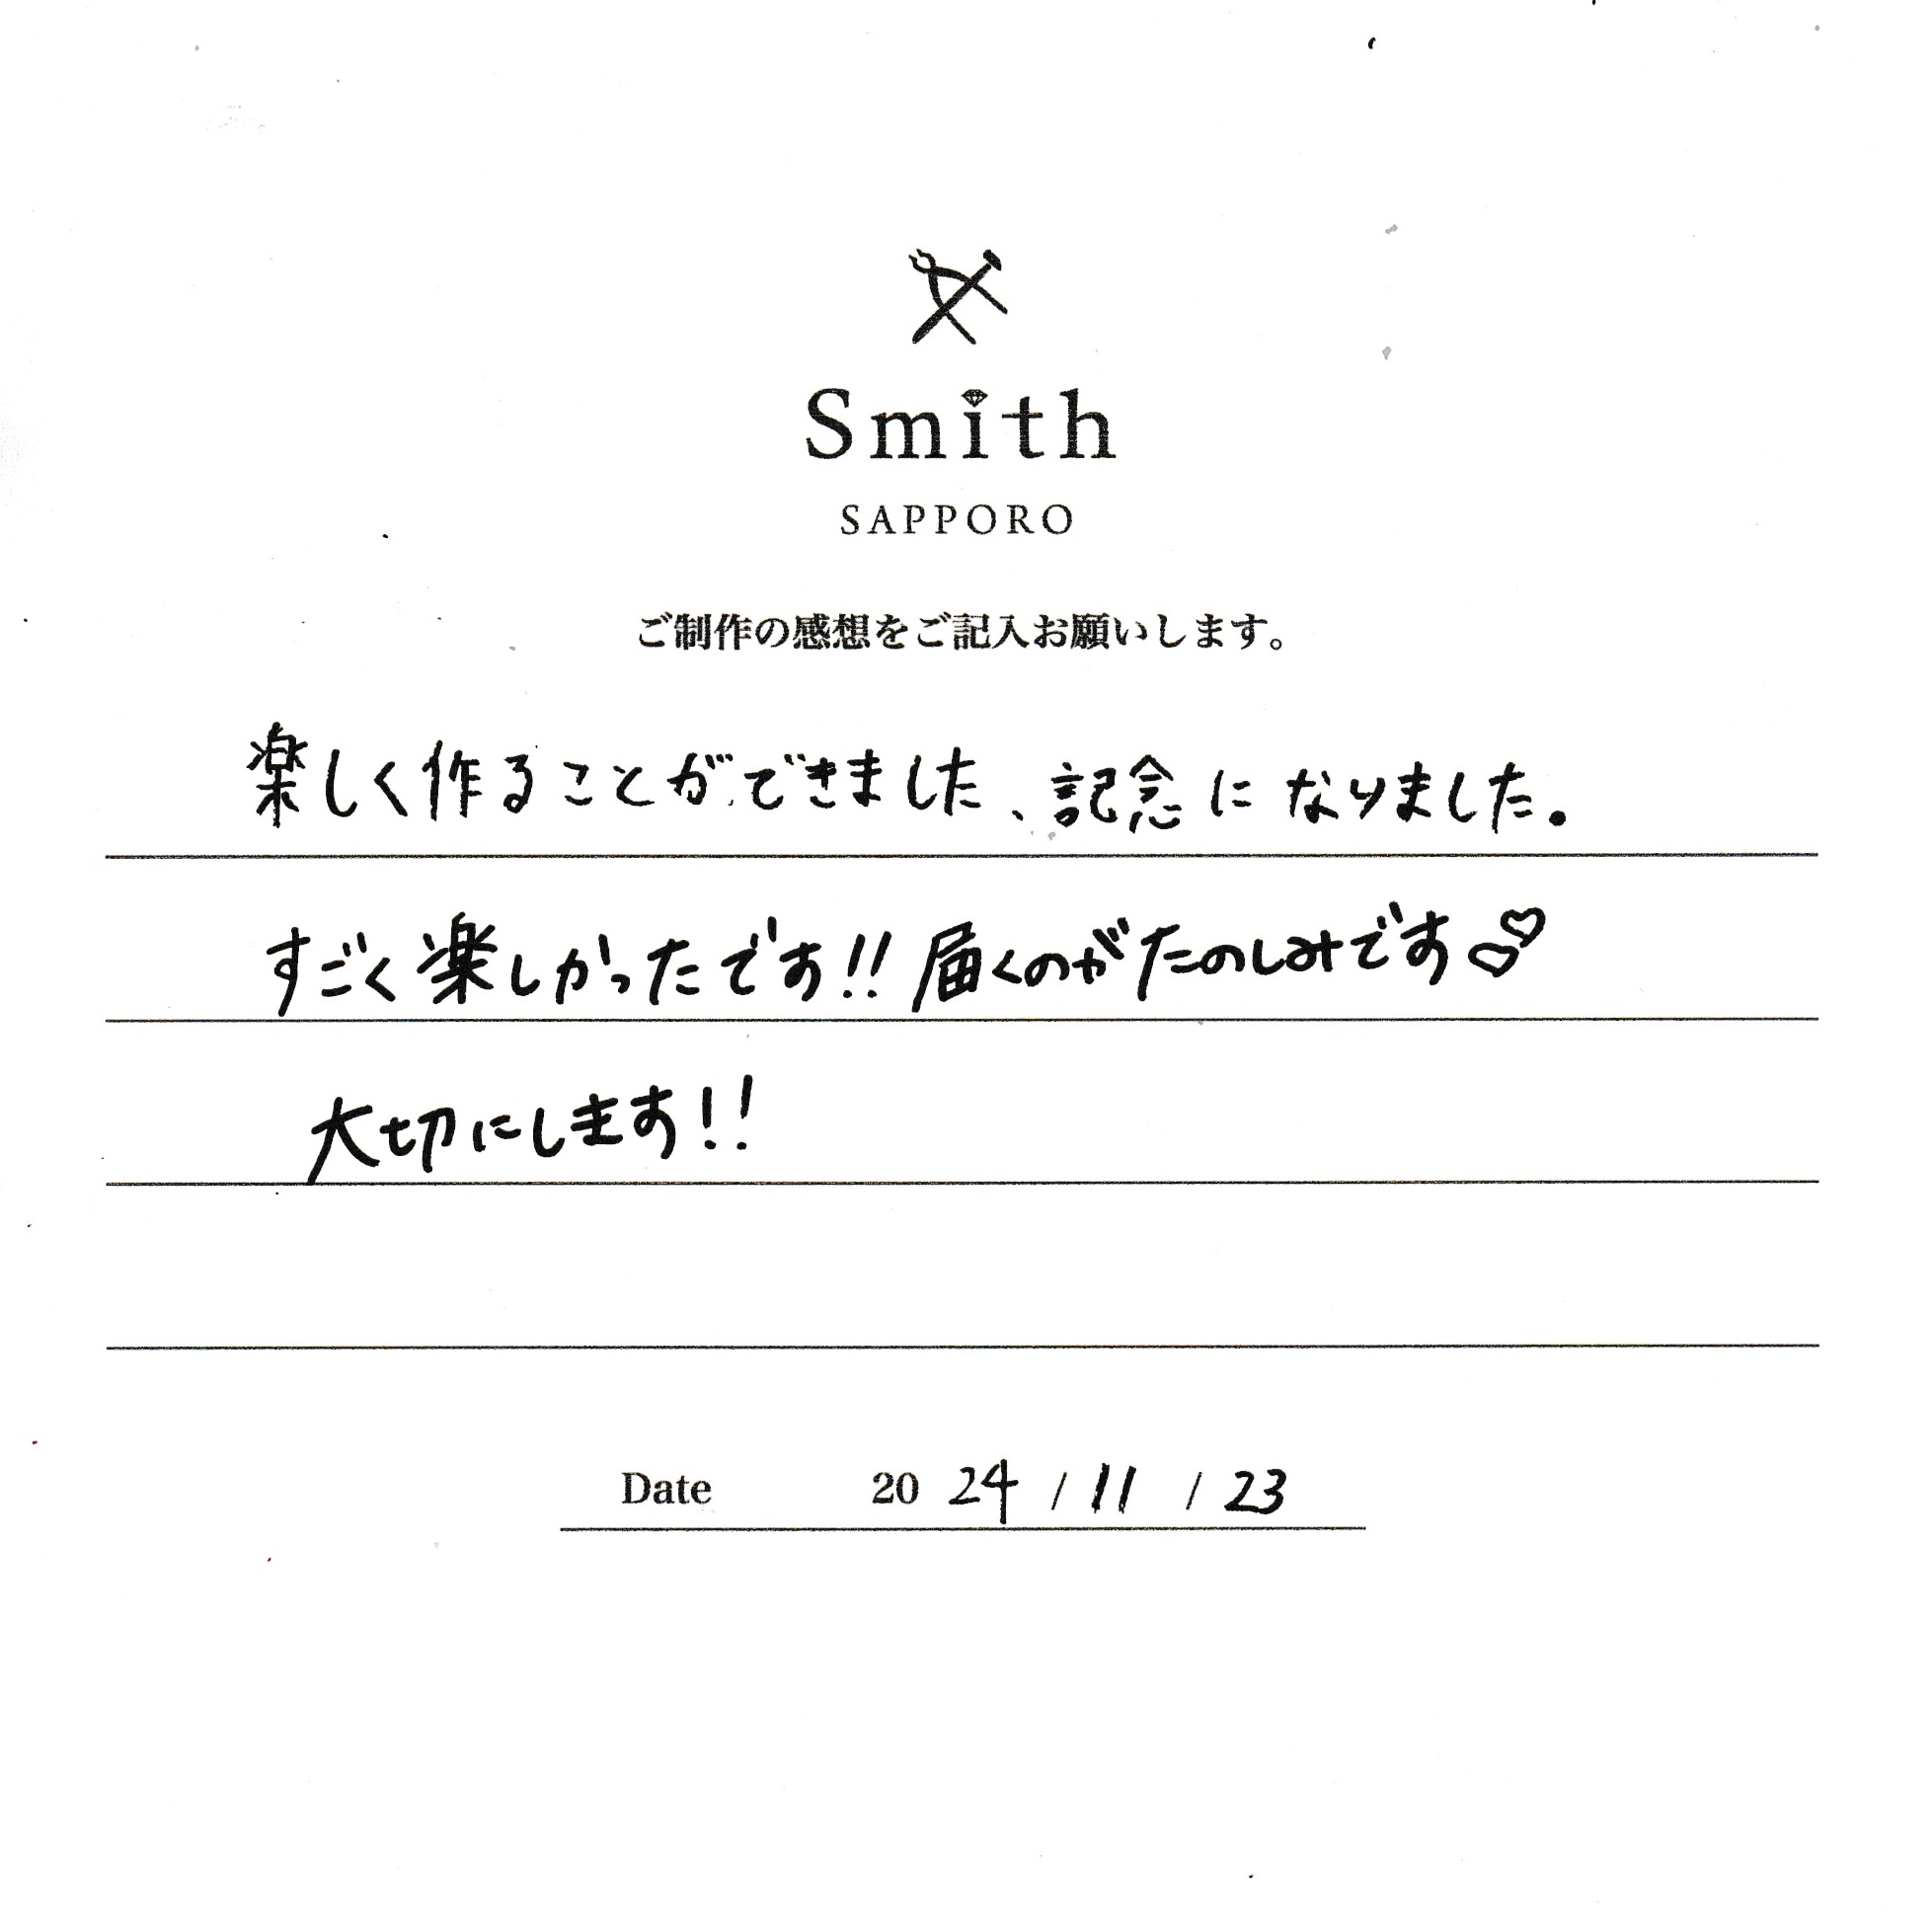 Smith
SAPPORO
ご制作の感想をご記入お願いします。
楽しく作ることができました、記念になりました。
すごく楽しかったです!!届くのがたのしみです♡♡
大切にします!!
Date 2024/11/23